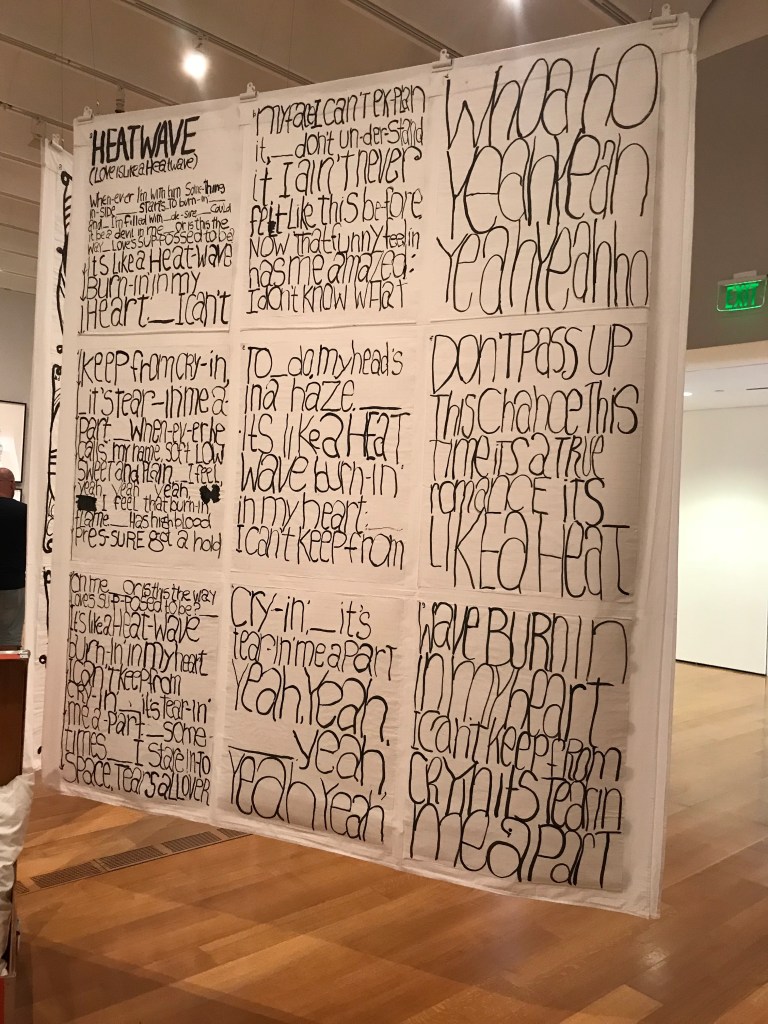 HEATWAVE
(Love is like a Heatwave)
When-ever I'm with him Some-thing
in-side ___ starts to burn-in ___
and _ I'm filled with _ de-sire _ Could
it be a devil in me _ or is this the
way _ Loves supposed to be
It's like a Heat-wave
Burn-in in my
Heart _ I can't
Keep from cry-in,
_ it's tear-in me a-
part. _ When-ev-er he
calls my name soft Low
sweet and plain _ I feel
yeah, yeah, yeah,
I feel that burn-in
flame _ Has high blood
Pres-sure got a hold
on me _ or is this the way
Loves sup-posed to be?
It's like a Heat-wave
burn-in' in my heart
I can't keep from
cry-in' _ it's tear-in'
me a-part _ some
times ___ I stare in-to
Space, tears all over
my face I can't explain
it, _ don't un-der-stand
it I ain't never
felt Like this before
Now that funny feelin
has me amazed;
I don't know what
To _ do, my head's
in a haze. ___
it's like a HEAT
wave burn-in'
in my heart. ___
I can't keep from
cry-in'. _ it's
tear-in' me a part
Yeah, Yeah,
___ yeah,
Yeah Yeah,
Whoa ho
Yeah Yeah
Yeah Yeah ho
DON'T PASS UP
This Chance This
time it's a true
romance its
LIKE a HEAT
Wave BURNIN
in my heart
I can't keep from
CRYN its tearin
me a PART
EXIT